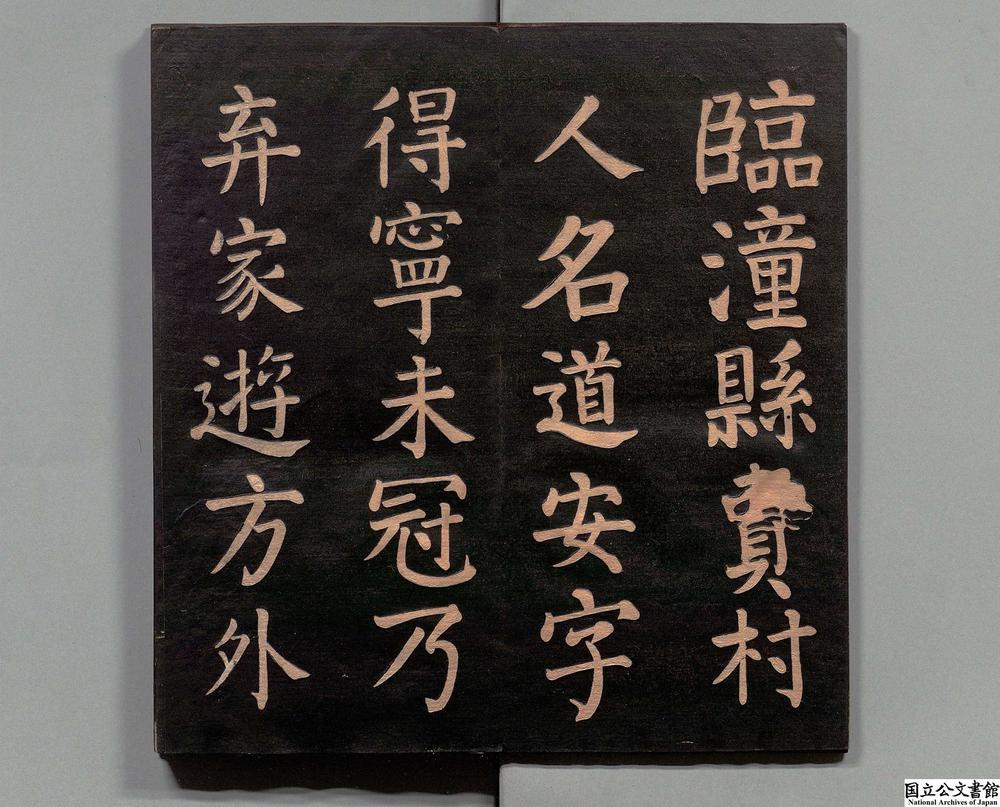 臨潼縣賁村
人名道安字
得寧未冠乃
弃家遊方外
国立公文書館
National Archives of Japan